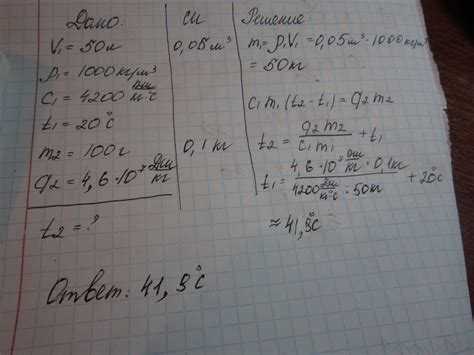 Дано:
V₁ = 50л
ρ₁ = 1000 кг/м³
C₁ = 4200 Дж/кг°С
t₁ = 20°С
m₂ = 100г
q₂ = 4,6 · 10⁷ Дж/кг
t₂ = ?
СИ
0,05 м³
0,1 кг
Решение
m₁ = ρ₁V₁ = 0,05м³ · 1000кг/м³
= 50кг
C₁ m₁ (t₂ - t₁) = q₂ m₂
t₂ = q₂ m₂ / C₁ m₁ + t₁
t₁ = 4,6 · 10⁷ Дж/кг · 0,1кг / 4200 Дж/кг°С · 50кг + 20°С
≈ 41,9°С
Ответ: 41,9°С